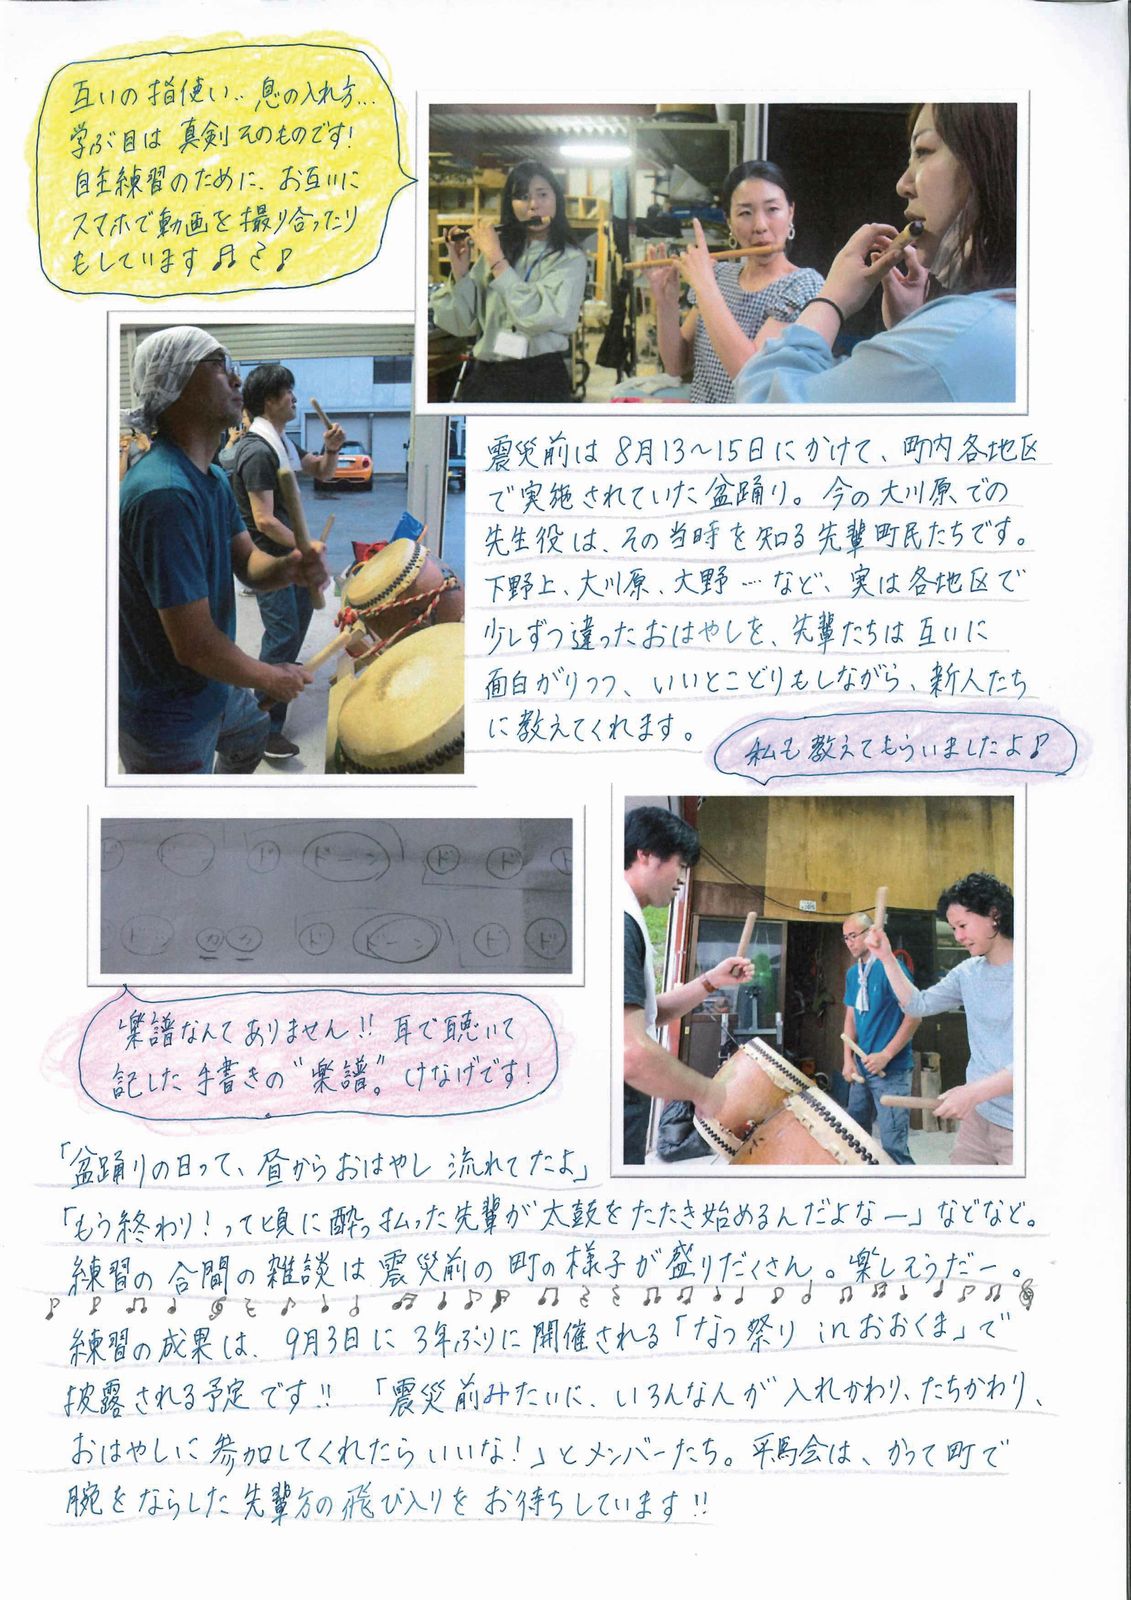 互いの指使い‥息の入れ方…
学ぶ目は真剣そのものです!
自主練習のために、お互いに
スマホで動画を撮り合ったり
もしています♫ミ♪
震災前は8月13〜15日にかけて、町内各地区
で実施されていた盆踊り。今の大川原での
先生役は、その当時を知る先輩町民たちです。
下野上、大川原、大野…など、実は各地区で
少しずつ違ったおはやしを、先輩たちは互いに
面白がりつつ、いいとこどりもしながら、新人たち
に教えてくれます。
私も教えてもらいましたよ♪
ドーン ド ドーン ド ド
ドーン カカ ド ドーン ド ド
楽譜なんてありません!!耳で聴いて
記した手書きの"楽譜"。けなげです!
「盆踊りの日って、昼からおはやし流れてたよ」
「もう終わり!って頃に酔っ払った先輩が太鼓をたたき始めるんだよなー」などなど。
練習の合間の雑談は震災前の町の様子が盛りだくさん。楽しそうだー。
練習の成果は、9月3日に3年ぶりに開催される「なつ祭りinおおくま」で
披露される予定です!!「震災前みたいに、いろんな人が入れかわり、たちかわり、
おはやしに参加してくれたらいいな!」とメンバーたち。平馬会は、かつて町で
腕をならした先輩方の飛び入りをお待ちしています!!